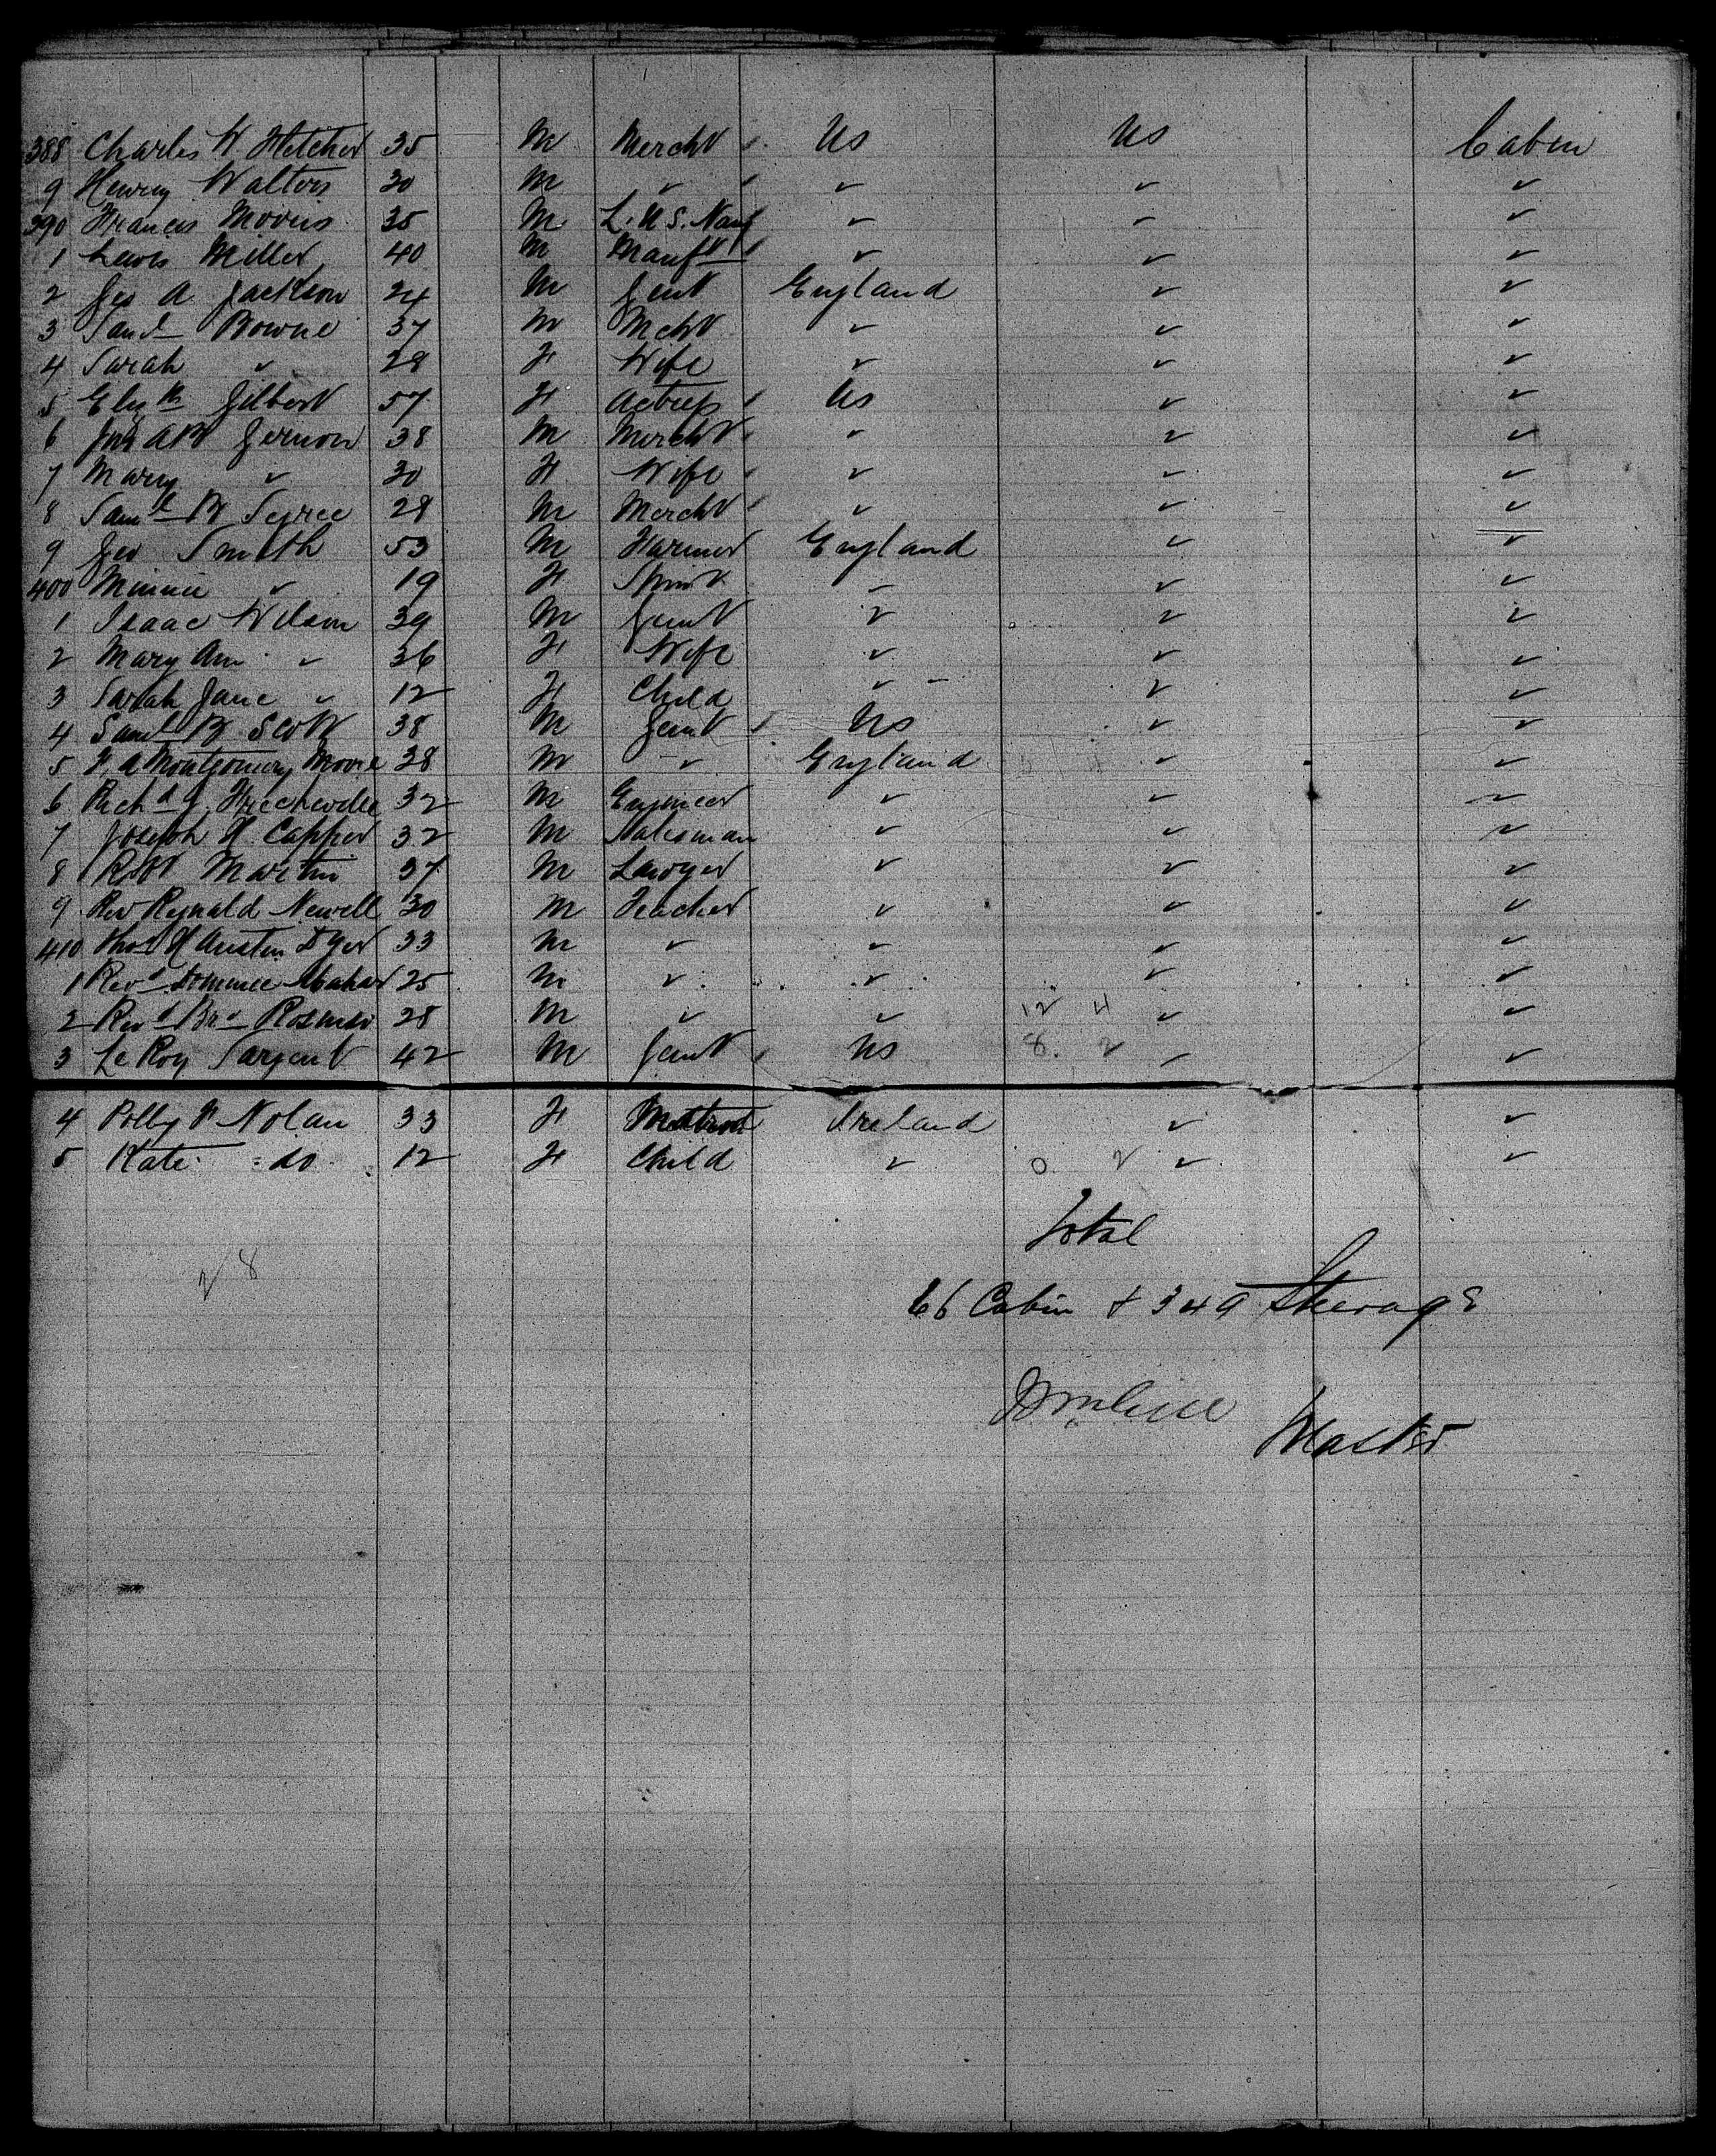 388 Charles W Fletcher 35 M Mercht Us Us Cabin
9 Henry Walters 30 M ✓ ✓ ✓ ✓
390 Francis Morris 35 M L. U.S. Navy ✓ ✓ ✓
1 Lewis Miller 40 M Manuft ✓ ✓ ✓
2 Geo A Jackson 24 M Gent England ✓ ✓
3 Saml Bowne 37 M Mcht ✓ ✓ ✓
4 Sarah ✓ 28 F Wife ✓ ✓ ✓
5 Elizth Gilbert 57 F Actress Us ✓ ✓
6 Jno AB Gernon 38 M Mercht ✓ ✓ ✓
7 Mary ✓ 30 F Wife ✓ ✓ ✓
8 Saml B 28 M Mercht ✓ ✓ ✓
9 Geo Smith 53 M Farmer England ✓ ✓
400 Minnie ✓ 19 F Spinst ✓ ✓ ✓
1 Isaac Wilson 39 M Gent ✓ ✓ ✓
2 Mary Ann ✓ 36 F Wife ✓ ✓ ✓
3 Sarah Jane ✓ 12 F Child ✓ ✓ ✓
4 Saml B Scott 38 M Gent Us ✓ ✓
5 F A Montgomery Moore 38 M ✓ England ✓ ✓
6 Richd J. Frecheville 32 M Engineer ✓ ✓ ✓
7 Joseph H. Capper 32 M Salesman ✓ ✓ ✓
8 Robt Martin 37 M Lawyer ✓ ✓ ✓
9 Rev Reynald Newell 30 M Teacher ✓ ✓ ✓
410 Thos H Austin Dyer 33 M ✓ ✓ ✓ ✓
1 Revd 25 M ✓ ✓ ✓ ✓
2 Revd Bro 28 M ✓ ✓ 12 4 ✓ ✓
3 Le Roy Sargent 42 M Gent Us 8. 2 ✓ ✓
4 Polly Nolan 33 F Ireland ✓ ✓
5 Kate do 12 F Child ✓ 0 2 ✓ ✓
Total
28
66 Cabin + 349 Steerage
Master